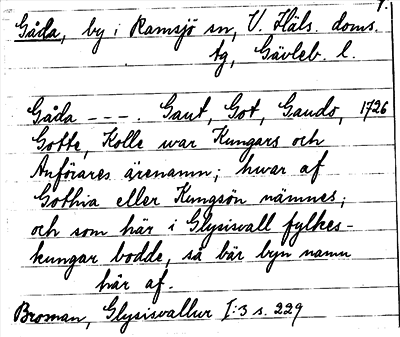 1.
Gåda, by i Ramsjö sn, V. Häls. doms.
tg, Gävleb. l.
Gåda - - - . Gaut, Got, Gauds, 1726
Gotte, Kolle war Kungars och
Anförares ärenamn; hwar af
Gothia eller Kungsön nämnes;
och som här i Glysisvall fylkes-
kungar bodde, så bär byn namn
här af.
Broman, Glysisvallur I:3 s. 229